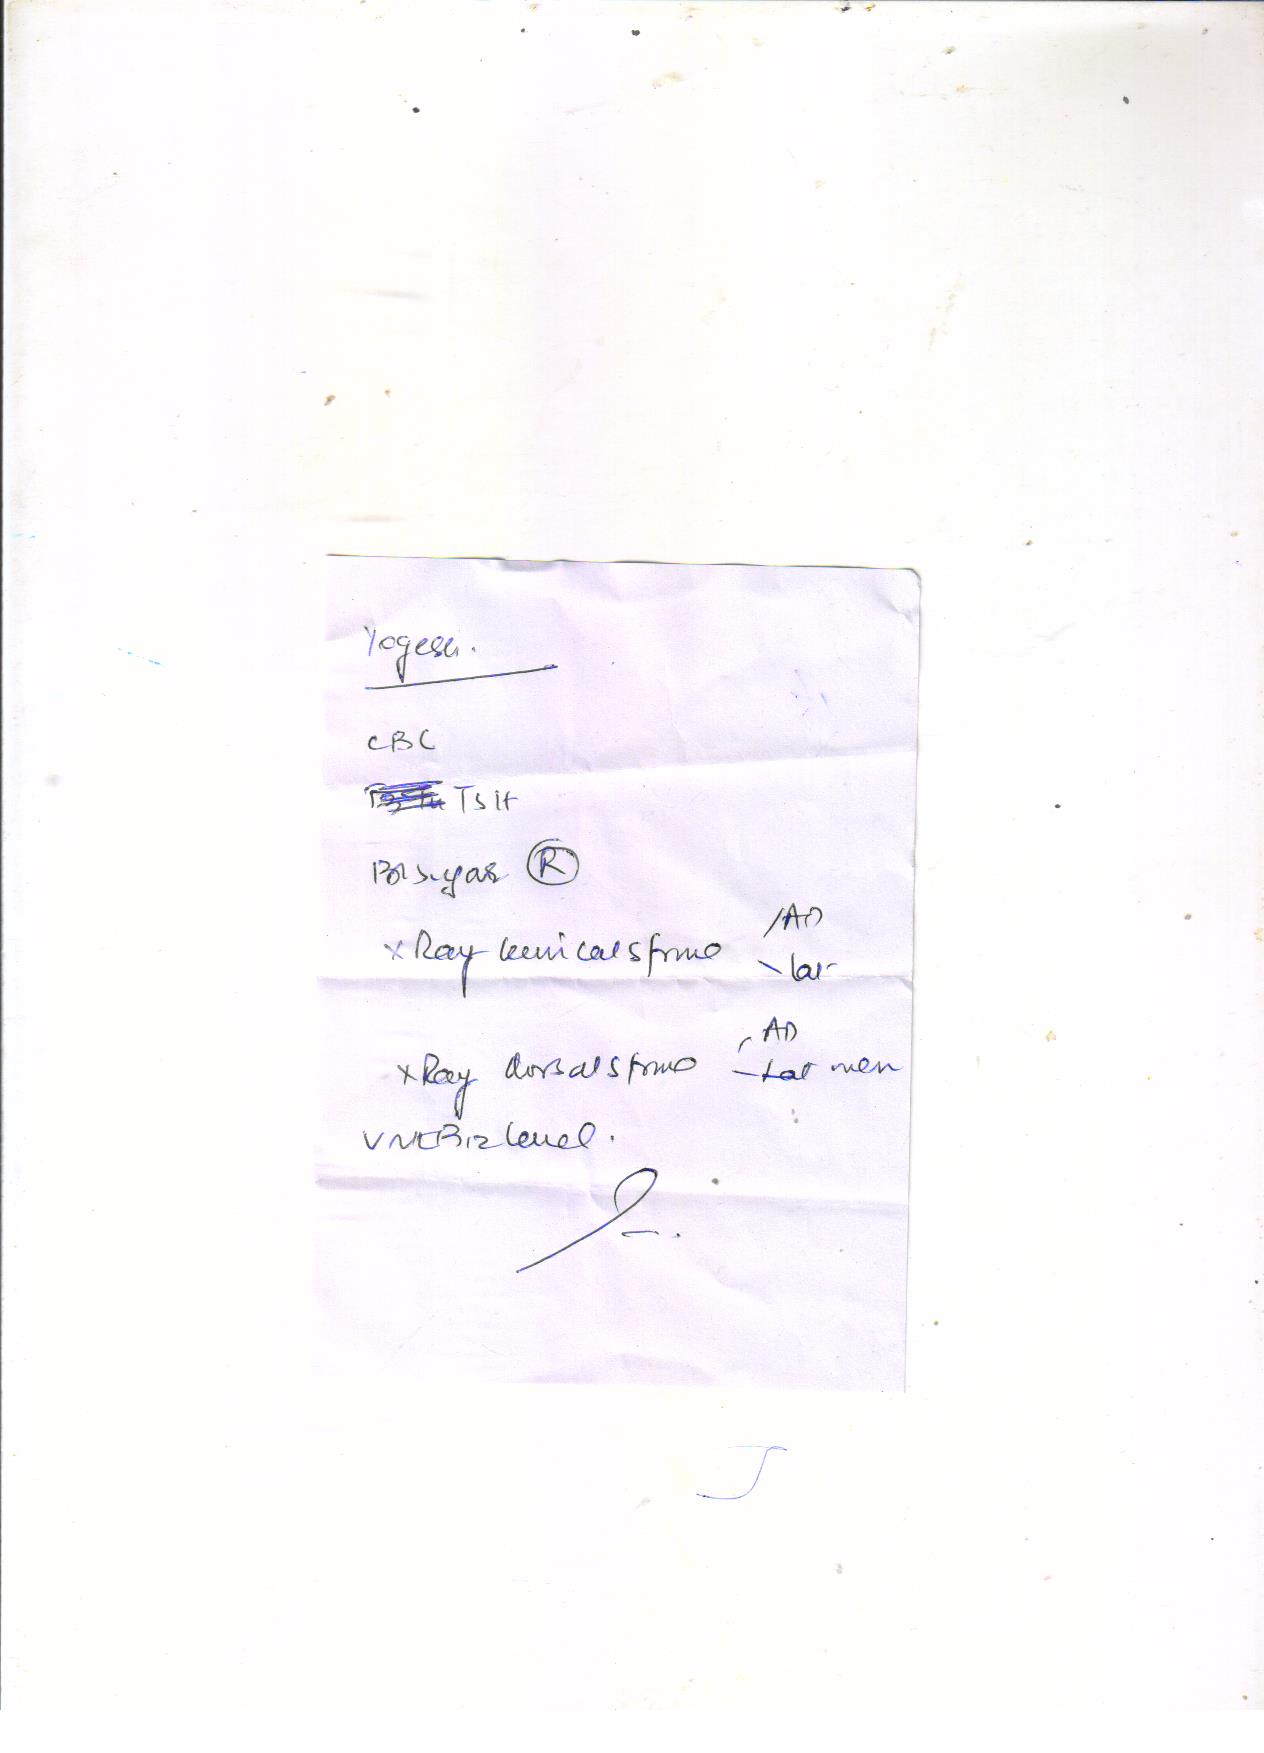 Yogesh.
CBC
TSH
Bl sugar R
X Ray cervical spine AP
lat
X Ray dorsal spine AP
Lat view
Vit B12 level.